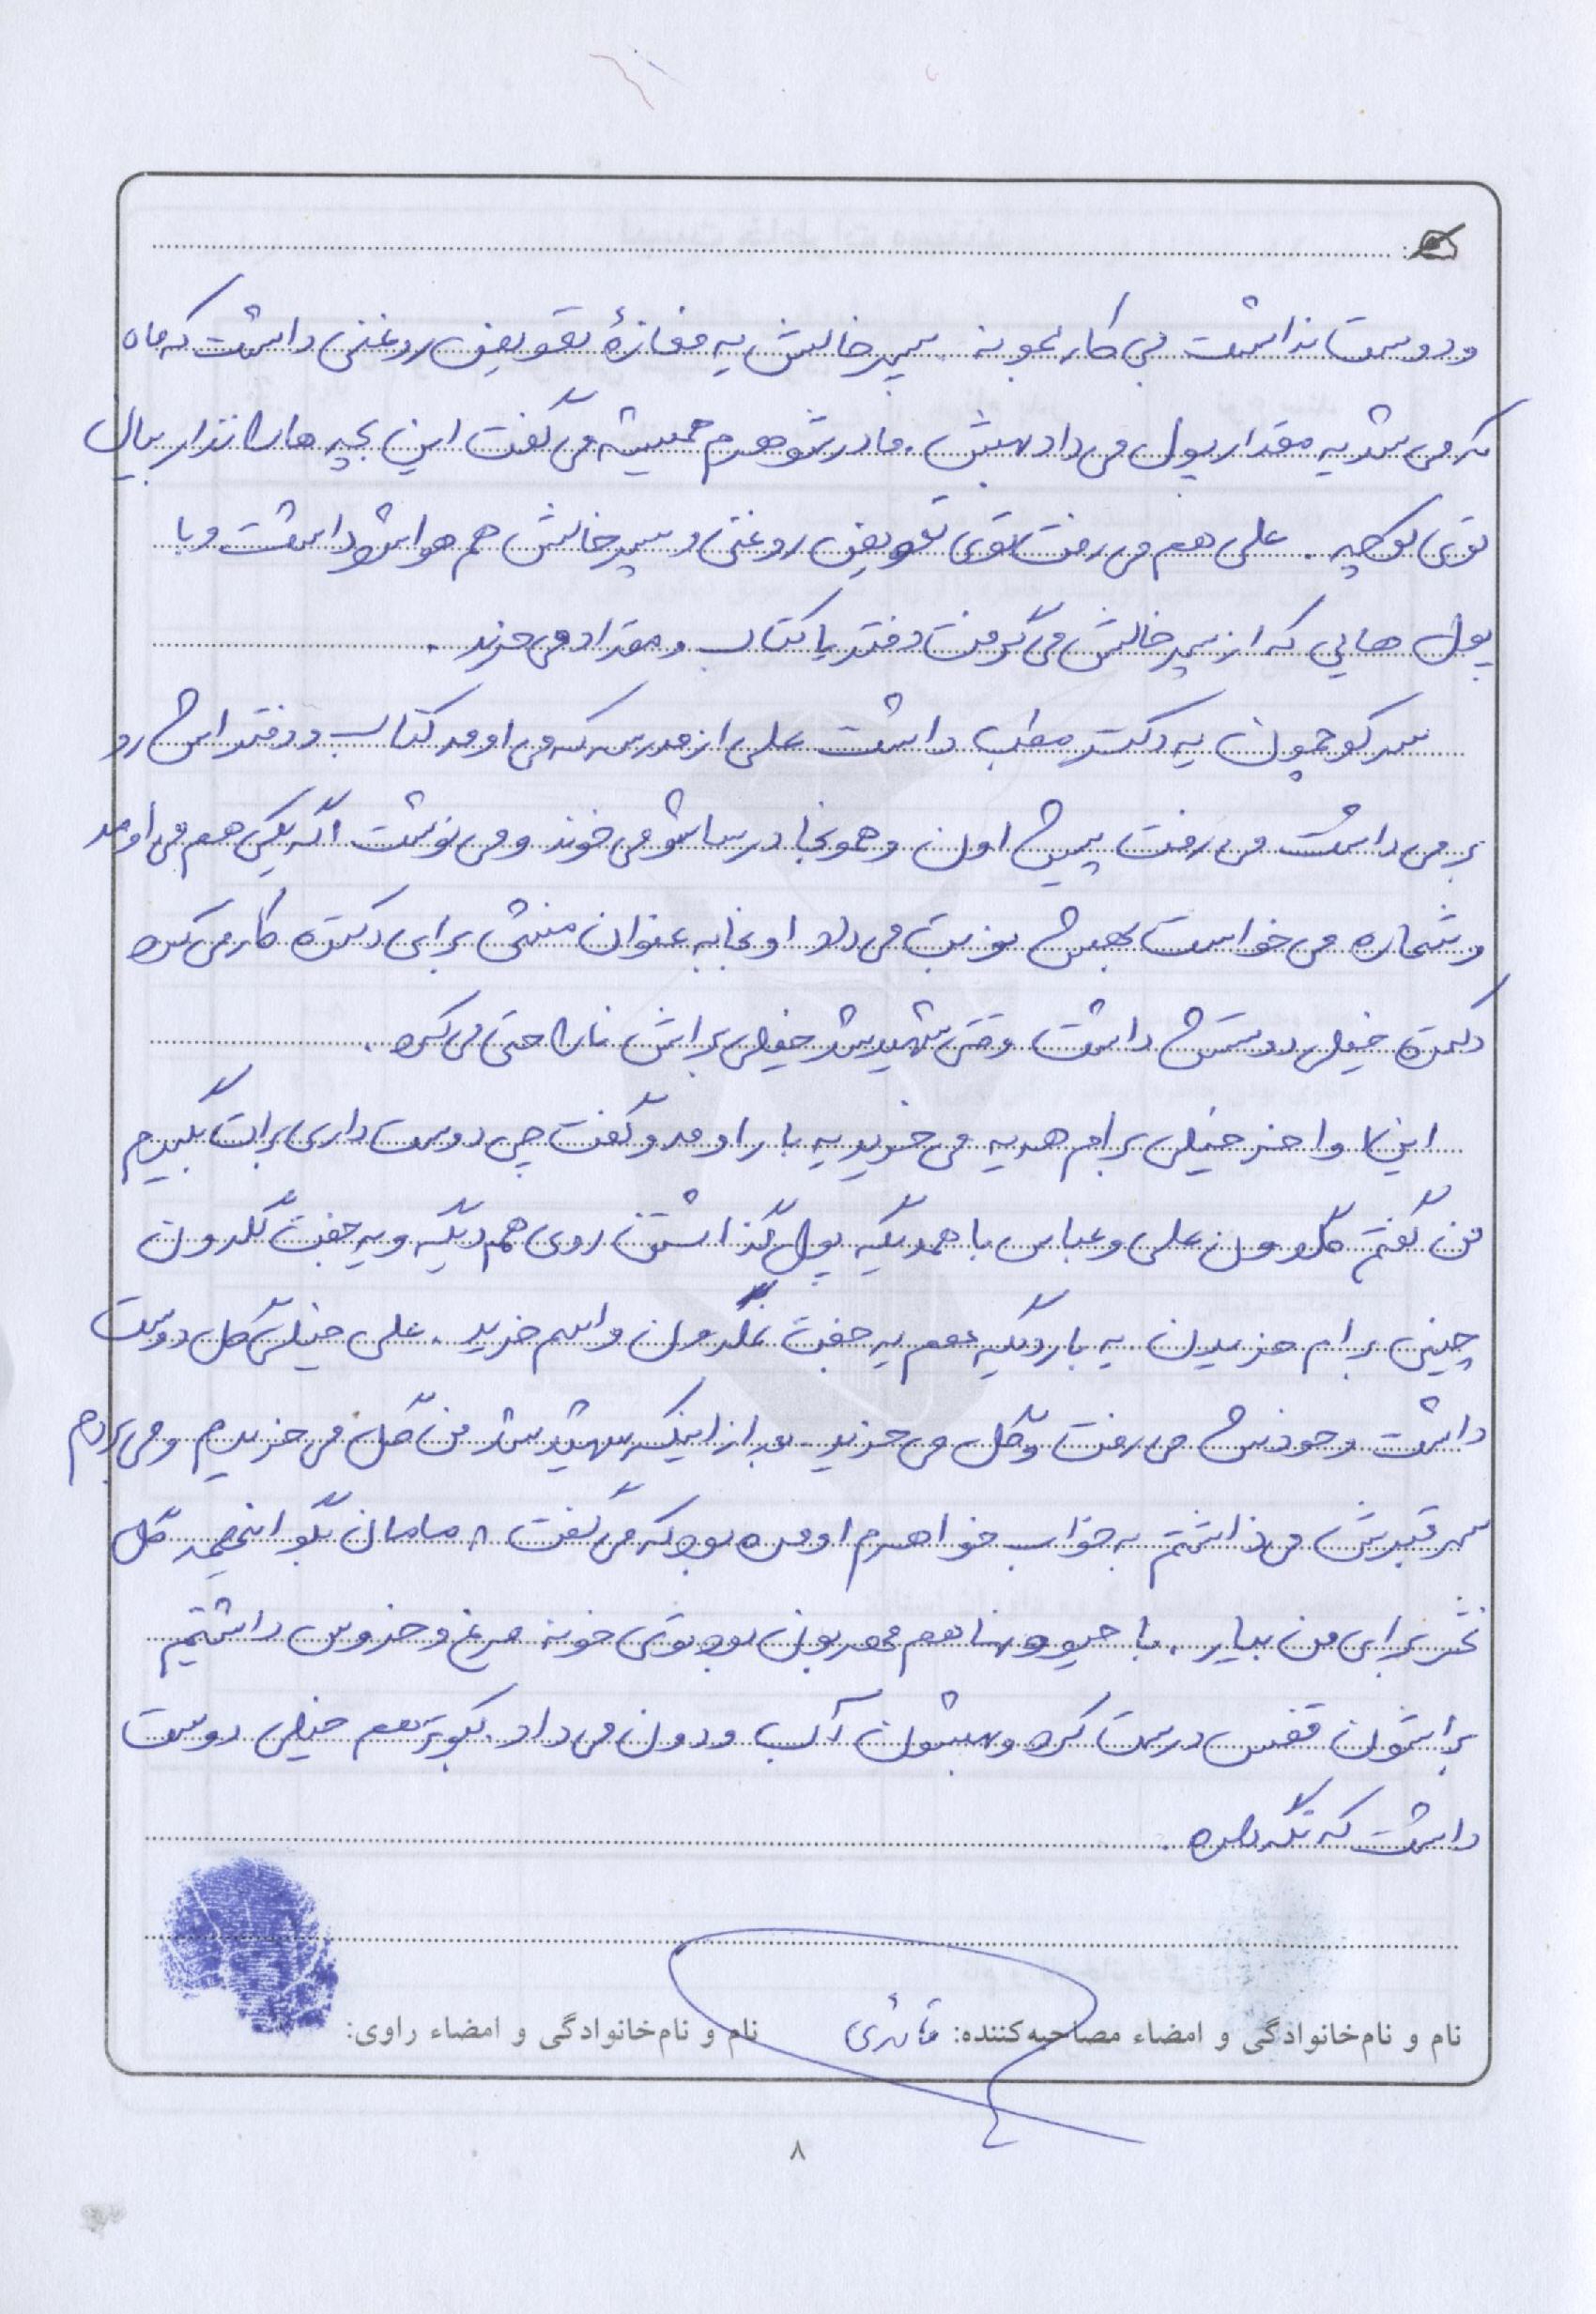 و دوست نداشت بی کار بمونه. پسر خالش یه مغازهٔ تعویض روغنی داشت که ماه
که می شد یه مقدار پول می داد بهش. مادرشوهرم همیشه می گفت این بچه ها را نذار بیان
توی کوچه. علی هم می رفت توی تعویض روغنی و پسر خالش هم هواشو داشت و با
پول هایی که از پسر خالش می گرفت دفتر یا کتاب و مداد می خرید.
سر کوچمون یه دکتر مطب داشت علی از مدرسه که می اومد کتاب و دفتراش رو
بر می داشت می رفت پیش اون و همونجا درساشو می خوند و می نوشت اگه یکی هم می اومد
و شماره می خواست بهش نوبت می داد اونجا به عنوان منشی برای دکتره کار می کرد
دکتره خیلی دوستش داشت وقتی شهید شد خیلی براش ناراحتی می کرد.
این اواخر خیلی برام هدیه می خرید یه بار اومد و گفت چی دوست داری برات بگیرم
من گفتم گلدون علی و عباس با همدیگه پول گذاشتن روی هم دیگه و یه جفت گلدون
چینی برام خریدن یه بار دیگه هم یه جفت گلدون واسم خرید. علی خیلی گل دوست
داشت و خودش می رفت و گل می خرید. بعد از اینکه شهید شد من گل می خریدم و می بردم
سر قبرش می ذاشتم به خواب خواهرم اومده بود که می گفت: مامان بگو اینهمه گل
نخر برای من بیار. با حیوونا هم مهربون بود توی خونه مرغ و خروس داشتیم
براشون قفس درست کرد و بهشون آب و دون می داد. کبوتر هم خیلی دوست
داشت که نگه داره.
نام و نام‌خانوادگی و امضاء مصاحبه‌کننده: نام و نام‌خانوادگی و امضاء راوی:
۸